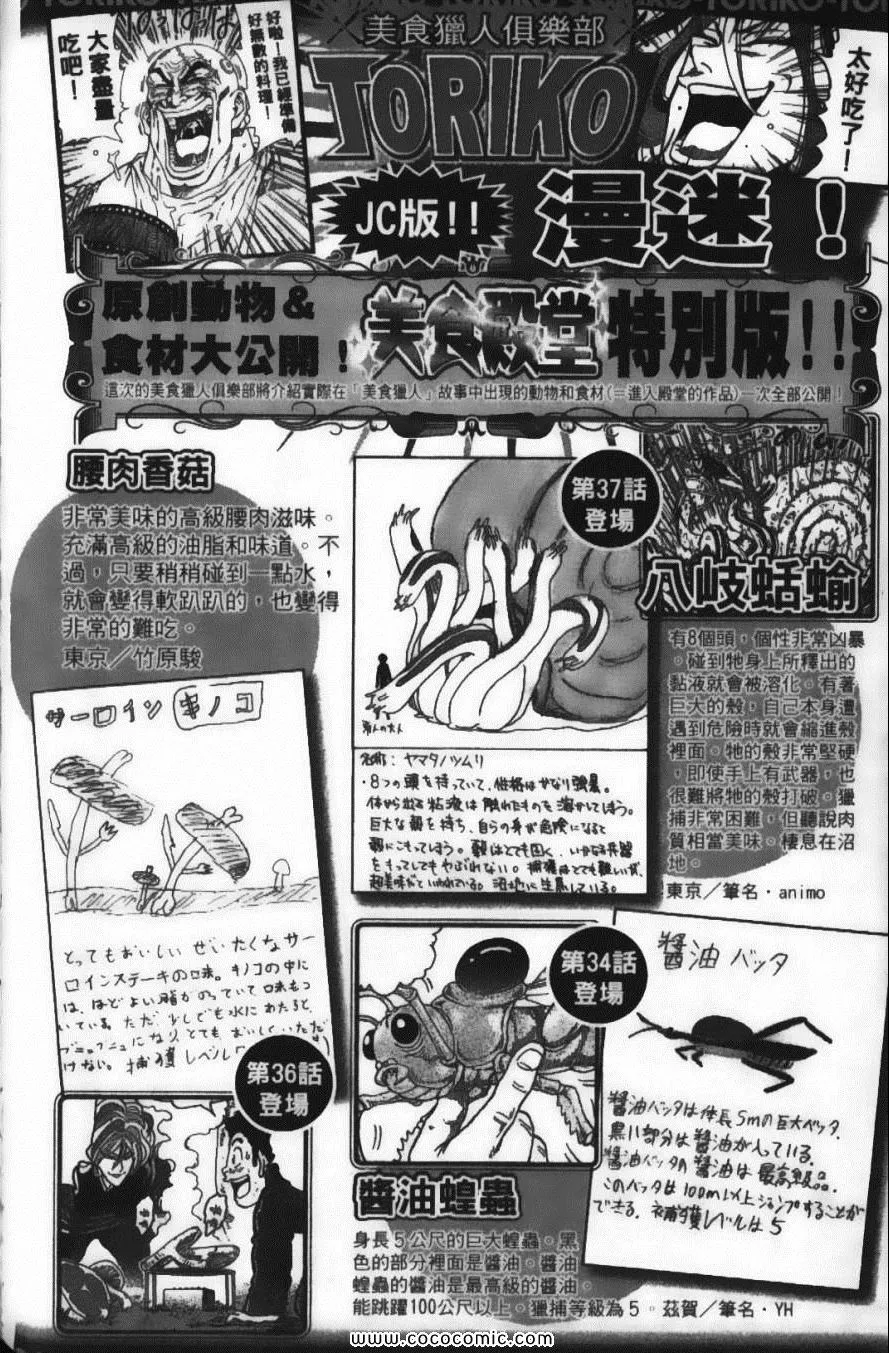 TORIKO-TORIKO-TORIKO
美食獵人俱樂部
TORIKO
好啦！我已經準備
好無數的料理！
大家盡量
吃吧！
太好吃了！
JC版!!
漫迷！
原創動物&
食材大公開！
美食殿堂特別版!!
這次的美食獵人俱樂部將介紹實際在「美食獵人」故事中出現的動物和食材(=進入殿堂的作品)一次全部公開！
腰肉香菇
非常美味的高級腰肉滋味。
充滿高級的油脂和味道。不
過，只要稍稍碰到一點水，
就會變得軟趴趴的，也變得
非常的難吃。
東京／竹原駿
サーロインキノコ
とってもおいしい ぜいたくなサー
ロインステーキの味。キノコの中に
は、ほどよい脂がのっていて味もつ
いている。ただ、少しでも水にあたると
ブニュブニュになり、とても おいしくいただ
けない。捕獲レベル「
第36話
登場
第37話
登場
名前：ヤマタノツムリ
・8つの頭を持っていて、性格はかなり強暴。
体から出る粘液は触れたものを溶かしてしまう。
巨大な殻を持ち、自らの身が危険になると
殻にこもってしまう。殻はとても固く、いかなる兵器
をもってしてもやぶれない。捕獲はとても難しいが、
超美味だといわれている。沼地に生息している。
八岐蛞蝓
有8個頭，個性非常凶暴
。碰到牠身上所釋出的
黏液就會被溶化。有著
巨大的殼，自己本身遭
遇到危險時就會縮進殼
裡面。牠的殼非常堅硬
，即使手上有武器，也
很難將牠的殼打破。獵
捕非常困難，但聽說肉
質相當美味。棲息在沼
地。
東京／筆名・animo
第34話
登場
醬油バッタ
醬油バッタは体長5mの巨大バッタ.
黒い部分は醬油が入っている.
醬油バッタの醬油は最高級品.
このバッタは100m以上ジャンプすることが
できる.捕獲レベルは5
醬油蝗蟲
身長5公尺的巨大蝗蟲。黑
色的部分裡面是醬油。醬油
蝗蟲的醬油是最高級的醬油。
能跳躍100公尺以上。獵捕等級為5。茲賀／筆名・YH
www.cococomic.com